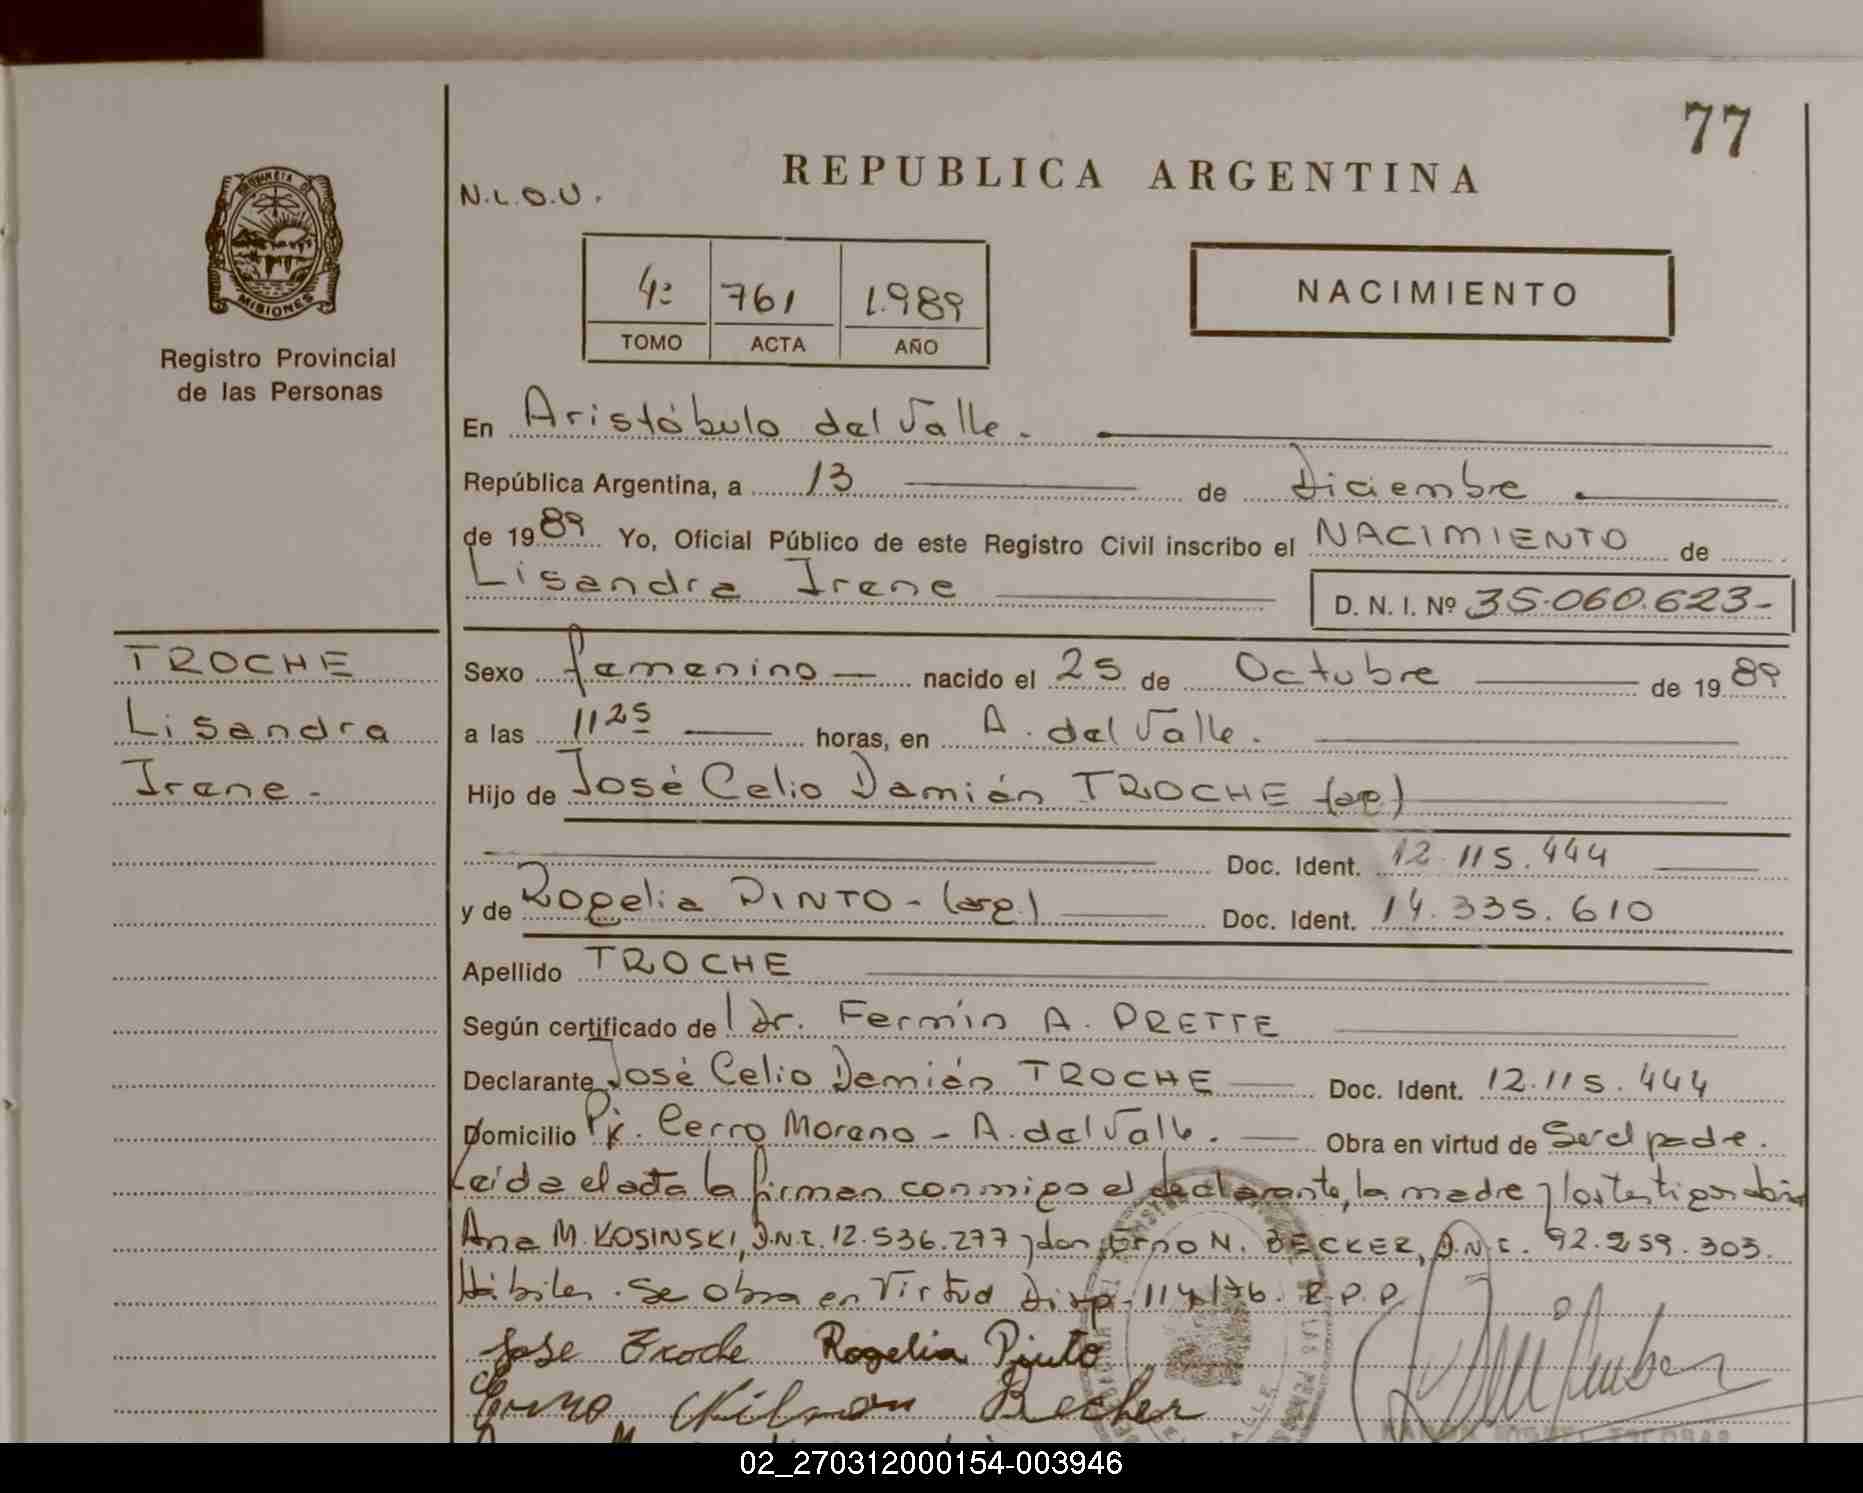 77
REPUBLICA ARGENTINA
N.L.O.U.
MISIONES
Registro Provincial
de las Personas
4º 761 1.989
TOMO ACTA AÑO
NACIMIENTO
En Aristóbulo del Valle.
República Argentina, a 13 de Diciembre
de 1989 Yo, Oficial Público de este Registro Civil inscribo el NACIMIENTO de
Lisandra Irene D. N. I. Nº 35.060.623-
TROCHE
Lisandra
Irene.-
Sexo femenino nacido el 25 de Octubre de 1989
a las 11 25 horas, en A. del Valle.
Hijo de José Celio Damián TROCHE (arg)
Doc. Ident. 12.115.444
y de Rogelia PINTO - (arg.) Doc. Ident. 14.335.610
Apellido TROCHE
Según certificado de Dr. Fermín A. PRETTE
Declarante José Celio Damián TROCHE Doc. Ident. 12.115.444
Domicilio Cerro Moreno - A. del Valle. Obra en virtud de Ser el padre.
Leída el acta la firman conmigo el declarante, la madre y los testigos
Ana M. KOSINSKI, D.N.I. 12.536.277 y don Erno N. BECKER, D.N.I. 92.259.303.
Hábiles. Se obra en Virtud Disp. 114/76. R.P.P.
Jose Troche Rogelia Pinto
Erno Nilson Becker
02_270312000154-003946